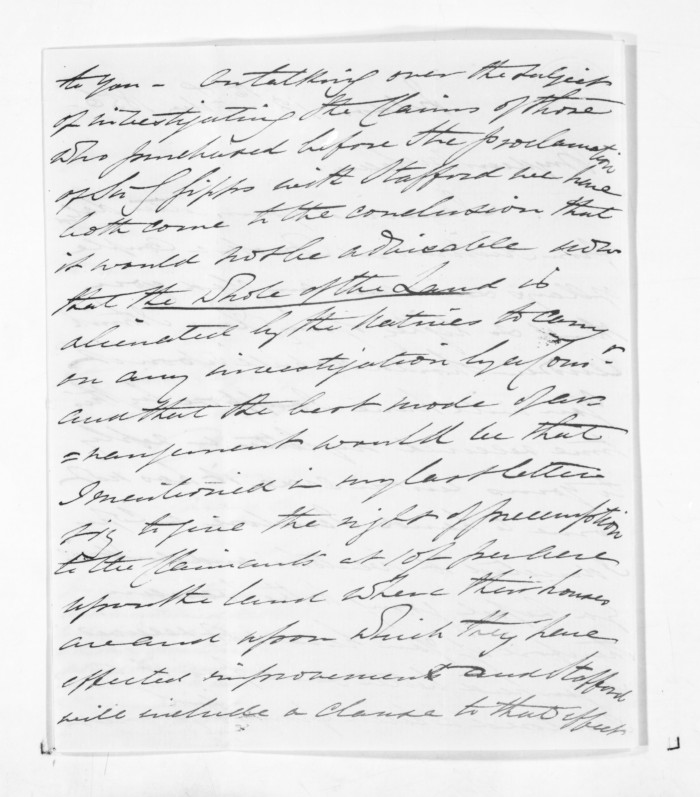 to you – On talking over the subject
of investigating the Claims of those
who purchased before the Proclamation
of Sir G Gipps with Stafford we have
both come to the conclusion that
it would not be advisable now
that the Whole of the Land is
alienated by the Natives to carry
on any investigation by a Comr
and that the best mode of ar
=rangement would be that
I mentioned in my last letter
viz to give the right of preemption
to the Claimants at 10/ per acre
upon the land where their houses
are and upon which they have
effected improvements and Stafford
will include a clause to that effect